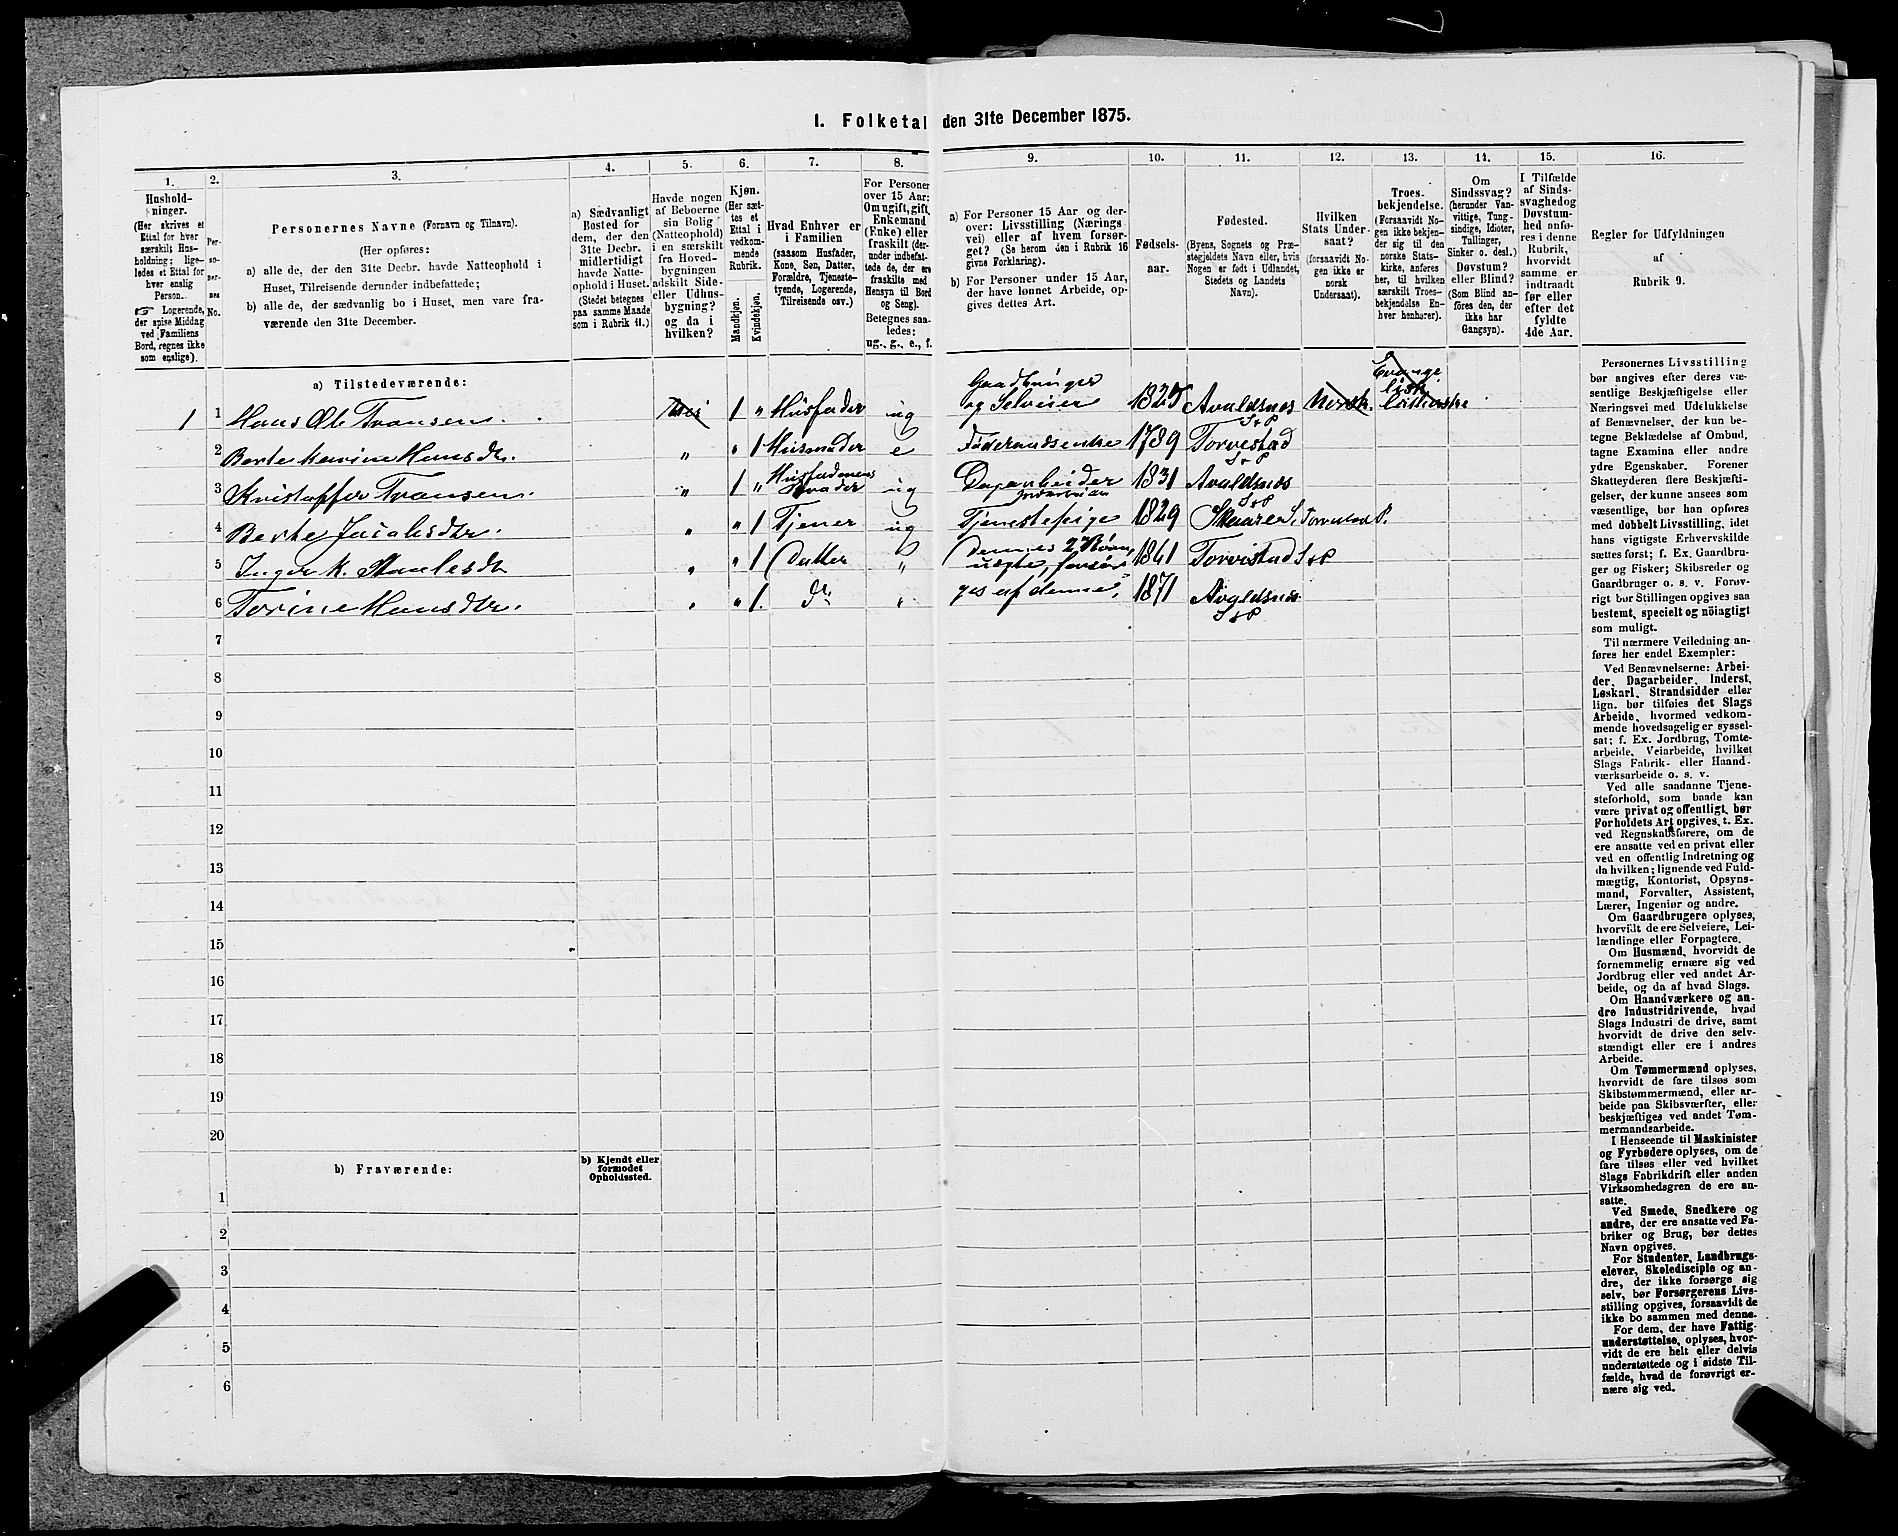 I. Folketal den 31te December 1875.
1.
2.
3.
4.
5.
6.
7.
8.
9.
10.
11.
12.
13.
14.
15.
16.
Hushold-
ninger.
(Her skrives et
Ettal for hver
særskilt Hus-
holdning; lige-
ledes et Ettal for
hver enslig
Person.
☞ Logerende,
der spise Middag
ved Familiens
Bord, regnes ikke
som enslige).
Per-
so-
per-
nes
No.
Personernes Navne (Fornavn og Tilnavn).
(Her opføres:
a) alle de, der den 31te Decbr. havde Natteophold i
Huset, Tilreisende derunder indbefattede;
b) alle de, der sædvanlig bo i Huset, men vare fra-
værende den 31te December.
a) Sædvanligt
Bosted for
dem, der den
31te Decbr.
midlertidigt
havde Natte-
ophold i Huset.
(Stedet betegnes
paa samme Maade
som i Rubrik 11.)
Havde nogen
af Beboerne
sin Bolig
(Natteophold)
i en særskilt
fra Hoved-
bygningen
adskilt Side-
eller Udhus-
bygning?
og da i
hvilken?
Kjøn.
(Her sæt-
tes et
Ettal i
vedkom-
mende
Rubrik.
Mandkjøn.
Kvindekjøn.
Hvad Enhver er
i Familien
(saasom Husfader,
Kone, Søn, Datter,
Forældre, Tjeneste-
tyende, Logerende,
Tilreisende osv.)
For Personer
over 15 Aar:
Om ugift, gift,
Enkemand
(Enke) eller
fraskilt (der-
under indbefat-
tede de, der ere
fraskilte med
Hensyn til Bord
og Seng).
Betegnes saa-
ledes:
ug., g., e., f.
a) For Personer 15 Aar og der-
over: Livsstilling (Nærings
vei) eller af hvem forsør-
get? (Se herom den i Rubrik 16
givne Forklaring).
b) For Personer under 15 Aar,
der have lønnet Arbeide, op-
gives dettes Art.
Fødsels-
aar.
Fødested.
(Byens, Sognets og Præ-
stegjeldets Navn eller, hvis
Nogen er født i Udlandet,
Stedets og Landets
Navn).
Hvilken
Stats Under-
saat?
(forsaavidt No-
gen ikke er
norsk
Undersaat).
Troes-
bekjendelse.
(Forsaavidt No-
gen ikke bekjen-
der sig til den
norske Stats-
kirke, anføres
her, til hvilken
særskilt Troes-
bekjendelse En-
hver henhører).
Om
Sindssvag?
(herunder Van-
vittige, Tung-
sindige, Idioter,
Tullinger,
Sinker o. desl.)
Døvstum?
eller Blind?
(Som Blind an-
føres den, der
ikke har
Gangsyn).
I Tilfælde
af Sinds-
svaghed og
Døvstum-
hed anfø-
res i denne
Rubrik,
hvorvidt
samme er
indtraadt
før eller
efter det
fyldte
4de Aar.
Regler for Udfyldningen
af
Rubrik 9.
a) Tilstedeværende:
1 1 Hans Ole Transen. Nei 1 " Husfader ug Gaardbruger og Selveier 1825 Avaldsnes S+P Norsk Evangelisk
2 Berte Karine Hansdtr. " " 1 Husmoder e Føderaadsenke 1789 Torvestad S+P
3 Kristoffer Transen. " 1 " Husfaderens Broder ug Dagarbeider Jordarbeide 1831 Avaldsnes S+P
4 Berte Jacobsdtr. " " 1 Tjener ug Tjenestepige 1829 Skaare S. Torvestad P.
5 Inger K. Staalesdtr " " 1 Datter " dennes 2 Børn, uægte, forsør- 1861 Torvestad S+P
6 Torine Hansdtr. " " 1. do " ges af denne, 1871 Avaldsnes S+P
7
8
9
10
11
12
13
14
15
16
17
18
19
20
b) Fraværende:
b) Kjendt eller
formodet
Opholdssted.
1
2
3
4
5
6
Personernes Livsstilling
bør angives efter deres væ-
sentlige Beskjæftigelse eller
Næringsvei med Udelukkelse
af Benævnelser, der kun be-
tegne Beklædelse af Ombud,
tagne Examina eller andre
ydre Egenskaber. Forener
Skatteyderen flere Beskjæfti-
gelser, der kunne ansees som
væsentlige, bør han opføres
med dobbelt Livsstilling, idet
hans vigtigste Erhvervskilde
sættes først; f. Ex. Gaardbru-
ger og Fisker; Skibsreder og
Gaardbruger o. s. v. Forøv-
rigt bør Stillingen opgives saa
bestemt, specielt og nöiagtigt
som muligt.
Til nærmere Veiledning an-
føres her endel Exempler:
Ved Benævnelserne: Arbei-
der, Dagarbeider, Inderst,
Løskarl, Strandsidder eller
lign. bør tilføies det Slags
Arbeide, hvormed vedkom-
mende hovedsagelig er syssel-
sat; f. Ex. Jordbrug, Tomte-
arbeide, Veiarbeide, hvilket
Slags Fabrik- eller Haand-
værksarbeide o. s. v.
Ved alle saadanne Tjene-
steforhold, som baade kan
være privat og offentligt, bør
Forholdets Art opgives, t. Ex.
ved Regnskabsførere, om de
ere ansatte ved en privat eller
ved en offentlig Indretning og
da hvilken; lignende ved Fuld-
mægtig, Kontorist, Opsyns-
mand, Forvalter, Assistent,
Lærer, Ingeniør og andre.
Om Gaardbrugere oplyses,
hvorvidt de ere Selveiere, Lei-
lændinge eller Forpagtere.
Om Husmænd, hvorvidt de
fornemmelig ernære sig ved
Jordbrug eller ved andet Ar-
beide, og da af hvad Slags.
Om Haandværkere og an-
dre Industridrivende, hvad
Slags Industri de drive, samt
hvorvidt de drive den selv-
stændigt eller ere i andres
Arbeide.
Om Tømmermænd oplyses,
hvorvidt de fare tilsøs som
Skibstømmermænd, eller ar-
beide paa Skibsværfter, eller
beskjæftiges ved andet Tøm-
mermandsarbeide.
I Henseende til Maskinister
og Fyrbødere oplyses, om de
fare tilsøs eller ved hvilket
Slags Fabrikdrift eller anden
Virksomhedsgren de ere an-
satte.
Ved Smede, Snedkere og
andre, der ere ansatte ved Fa-
briker og Brug, bør dettes
Navn opgives.
For Studenter, Landbrugs-
elever, Skoledisciple og an-
dre, der ikke forsørge sig
selv, bør Forsørgerens Livs-
stilling opgives, forsaavidt de
ikke bo sammen med denne.
For dem, der have Fattig-
understøttelse, oplyses, hvor-
vidt de ere helt eller delvis
understøttede og i sidste Til-
fælde, hvad de forøvrigt er-
nære sig ved.